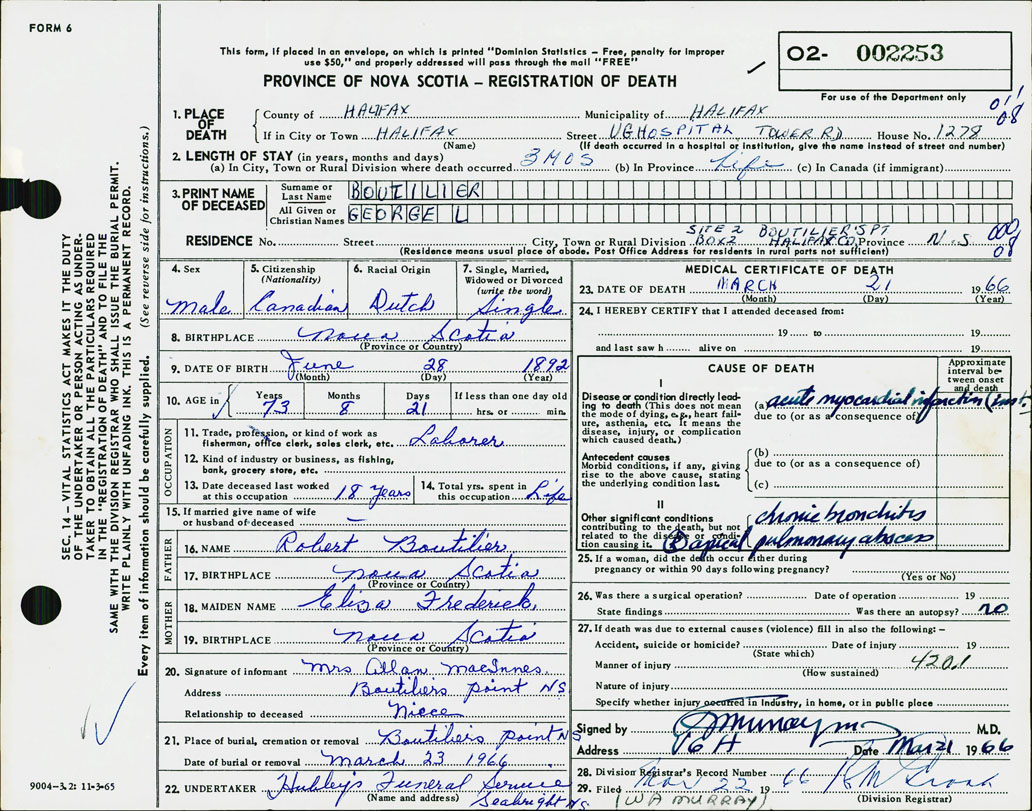 FORM 6
This form, if placed in an envelope, on which is printed "Dominion Statistics – Free, penalty for improper
use $50," and properly addressed will pass through the mail "FREE"
O2- 002253
PROVINCE OF NOVA SCOTIA – REGISTRATION OF DEATH
For use of the Department only
011
08
1. PLACE OF DEATH
County of HALIFAX Municipality of HALIFAX
If in City or Town HALIFAX Street VGHOSPITAL TOWER RD House No. 1278
(Name) (If death occurred in a hospital or institution, give the name instead of street and number)
2. LENGTH OF STAY (in years, months and days)
(a) In City, Town or Rural Division where death occurred 3 MOS (b) In Province Life (c) In Canada (if immigrant)
3. PRINT NAME OF DECEASED
Surname or Last Name BOUTILIER
All Given or Christian Names GEORGE L
SITE 2 BOUTILIER'S PT
RESIDENCE No. Street City, Town or Rural Division BOX2 HALIFAX CO. Province N.S
000
08
(Residence means usual place of abode. Post Office Address for residents in rural parts not sufficient)
4. Sex Male
5. Citizenship (Nationality) Canadian
6. Racial Origin Dutch
7. Single, Married, Widowed or Divorced (write the word) Single
8. BIRTHPLACE Nova Scotia
(Province or Country)
9. DATE OF BIRTH June 28 1892
(Month) (Day) (Year)
10. AGE in Years 73 Months 8 Days 21 If less than one day old hrs. or min.
OCCUPATION
11. Trade, profession, or kind of work as fisherman, office clerk, sales clerk, etc. Laborer
12. Kind of industry or business, as fishing, bank, grocery store, etc.
13. Date deceased last worked at this occupation 18 Years
14. Total yrs. spent in this occupation Life
15. If married give name of wife or husband of deceased —
FATHER
16. NAME Robert Boutilier
17. BIRTHPLACE Nova Scotia
(Province or Country)
MOTHER
18. MAIDEN NAME Eliza Frederick
19. BIRTHPLACE Nova Scotia
(Province or Country)
20. Signature of informant Mrs Allan MacInnes
Address Boutiliers Point NS
Relationship to deceased Niece
21. Place of burial, cremation or removal Boutiliers Point NS
Date of burial or removal March 23 1966
22. UNDERTAKER Hubley's Funeral Service
(Name and address) Seabright NS
MEDICAL CERTIFICATE OF DEATH
23. DATE OF DEATH MARCH 21 1966
(Month) (Day) (Year)
24. I HEREBY CERTIFY that I attended deceased from:
19 to 19
and last saw h alive on 19
CAUSE OF DEATH
Approximate interval between onset and death
I
Disease or condition directly leading to death (This does not mean the mode of dying, e.g., heart failure, asthenia, etc. It means the disease, injury, or complication which caused death.)
(a) acute myocardial infarction (inst
due to (or as a consequence of)
Antecedent causes
Morbid conditions, if any, giving rise to the above cause, stating the underlying condition last.
(b)
due to (or as a consequence of)
(c)
II
Other significant conditions
contributing to the death, but not related to the disease or condition causing it.
chronic bronchitis
apical pulmonary abscess
25. If a woman, did the death occur either during pregnancy or within 90 days following pregnancy?
(Yes or No)
26. Was there a surgical operation? Date of operation 19
State findings Was there an autopsy? no
27. If death was due to external causes (violence) fill in also the following: –
Accident, suicide or homicide? Date of injury 19
(State which)
Manner of injury 420.1
(How sustained)
Nature of injury
Specify whether injury occurred in Industry, in home, or in public place
Signed by Murray M.D.
Address VGH Date Mar 21 1966
28. Division Registrar's Record Number
29. Filed Mar 22 1966
(Division Registrar)
(W A MURRAY)
SEC. 14 – VITAL STATISTICS ACT MAKES IT THE DUTY
OF THE UNDERTAKER OR PERSON ACTING AS UNDER-
TAKER TO OBTAIN ALL THE PARTICULARS REQUIRED
IN THE "REGISTRATION OF DEATH" AND TO FILE THE
SAME WITH THE DIVISION REGISTRAR WHO SHALL ISSUE THE BURIAL PERMIT.
WRITE PLAINLY WITH UNFADING INK. THIS IS A PERMANENT RECORD.
Every item of information should be carefully supplied. (See reverse side for instructions.)
9004-3.2: 11-3-65